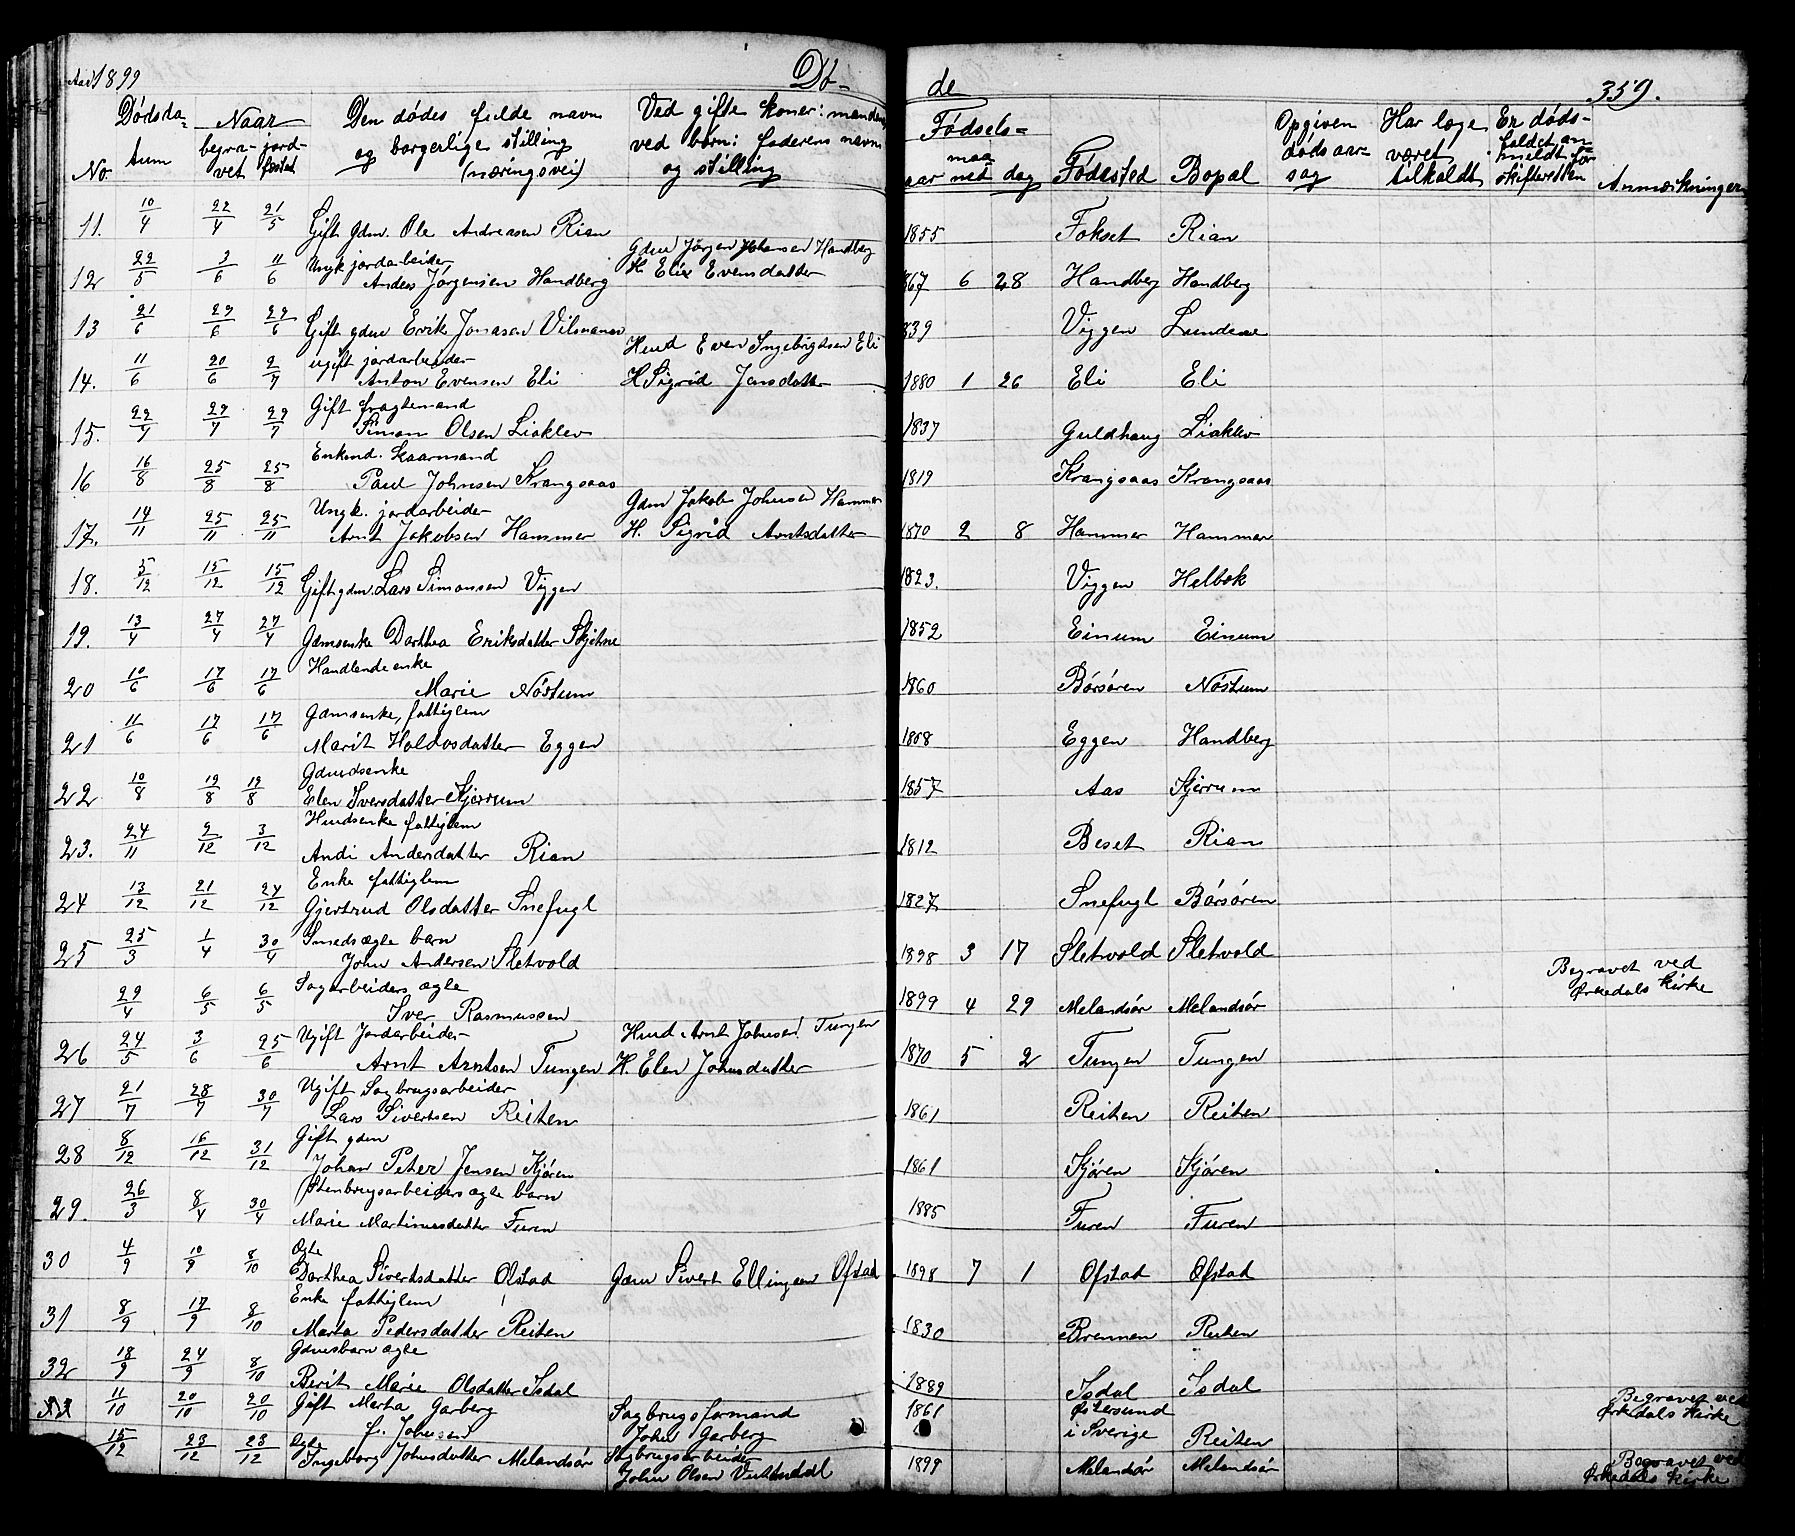 Aar 1899 Dö- de 359.
No. Dödsdatum Naar begravet jordfæstet Den dödes fulde navn og borgerlige stilling (næringsvei) Ved gifte koner: mandens, ved börn: faderens navn og stilling Födsels- aar maaned dag Födested Bopæl Opgiven dødsaarsag Har læge været tilkaldt Er dødsfaldet anmeldt for skifteretten Anmærkninger
11. 10/4 22/4 21/5 Gift gdm. Ole Andreasen Rian 1855 Fokset Rian
Ungk jordarbeider Gdm Jörgen Johansen Handberg
12 22/5 3/6 11/6 Anders Jörgensen Handberg H. Elie Evensdatter 867 6 28 Handberg Handberg
13 21/6 29/6 29/6 Gift gdm Erik Jonasen Vilsmanen 839 Viggen
ugift jordarbeider Hmd Even Ingebrigtsen Eli
14. 11/6 20/6 2/7 Anton Evensen Eli H. Sigrid Jonsdatter 1880 1 26 Eli Eli
Gift fragtemand
15. 22/7 29/7 29/7 Simon Olsen Liaklev 1837 Guldhaug Liaklev
Enkemd. kaarmand
16 16/8 25/8 25/8 Paul Johnsen Krangsaas 1819 Krangsaas Krangsaas
Ungk. jordarbeider Gdm Jakob Johnsen Hammer
17. 14/11 25/11 25/11 Arnt Jakobsen Hammer H. Sigrid Arntsdatter 1870 2 8 Hammer Hammer
18. 5/12 15/12 15/12 Gift gdm. Lars Simonsen Viggen 1823. Viggen Helbok
19. 13/4 27/4 27/4 Gdmsenke Dorthea Eriksdatter Skjetne 1852 Einum Einum
Handlende enke
20 10/6 17/6 17/6 Marie Nöstum 1860 Börsören Nöstum
Gdmsenke, fattiglem
21 11/6 17/6 17/6 Marit Haldosdatter Eggen 1808 Eggen Handberg
Gdmdsenke
22 10/8 19/8 19/8 Elen Iversdatter Kjerrum 1857 Aas Kjerrum
Hmdsenke fattiglem
23. 24/11 2/12 3/12 Andi Andersdatter Rian 1812 Beset Rian
Enke fattiglem
24 13/12 21/12 24/12 Gjertrud Olsdatter Snefugl 1827 Snefugl Börsören
Smeds ægte barn
25 25/3 1/4 30/4 John Andersen Sletvold 1898 3 17 Sletvold Sletvold
Begravet ved
Ørkedals kirke
Sagarbeiders ægte
29/4 6/5 6/5 Iver Rasmussen 1899 4 29 Melandsör Melandsör
Ugift Jordarbeider Hmd Arnt Johnsen Tungen
26 24/5 3/6 25/6 Arnt Arntsen Tungen H. Elen Johnsdatter 1870 5 2 Tungen Tungen
Ugift Sagbrugsarbeider
27 21/7 28/7 30/7 Lars Sivertsen Reiten 1861 Reiten Reiten
Gift gdm
28 8/12 16/12 31/12 Johan Peter Jensen Kjören 1861 Kjören Kjören
Stenbrugsarbeiders ægte barn
29. 26/3 8/4 30/4 Marie Martinusdatter Furen 1885 Furen Furen
Ægte
30 4/9 10/9 8/10 Dorthea Sivertsdatter Ofstad Gdm Sivert Ellingsen Ofstad 1898 7 1 Ofstad Ofstad
Enke fattiglem
31 8/9 17/9 8/10 Marta Pedersdatter Reiten 1830 Brennen Reiten
Gdmsbarn ægte
32 18/9 24/9 8/10 Berit Marie Olsdatter Isdal 1889 Isdal Isdal
11/10 20/10 20/10 Gift Marta Garberg Sagbrugsformand 1861 Østersund Begravet ved
f. Johnsen John Garberg i Sverige Reiten Ørkedals Kirke
15/12 23/12 23/12 Ægte Ingeborg Johnsdatter Melandsör Sagbrugsarbeider 1899 Melandsör Melandsör Begravet ved
John Olsen Ørkedals kirke